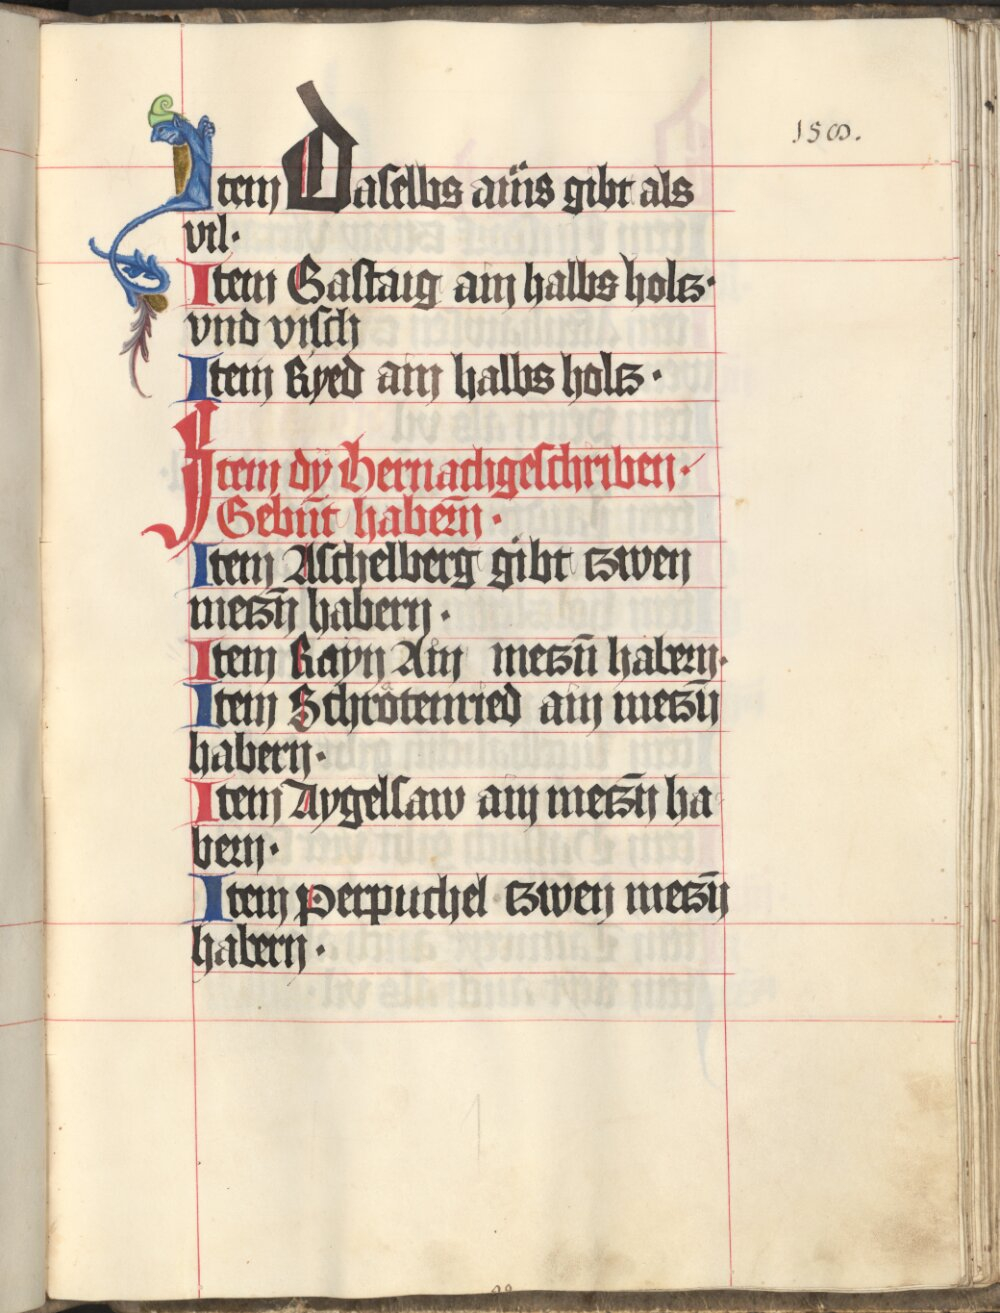 1500.
Item Daselbs ainß gibt als
vil·
Item Gastaig ain halbs holtz·
vnd visch
Item Ryed ain halbs holtz·
Item dÿ Hernachgeschriben·
Gebn̄t haberñ·
Item Aschelberg gibt tzwen
metzn̄ habern·
Item Rayn Ain metzn̄ habern·
Item Schrötenried ain metzn̄
habern·
Item Aygelsaw ain metzn̄ ha
bern·
Item Perpuchel tzwen metzn̄
habern·